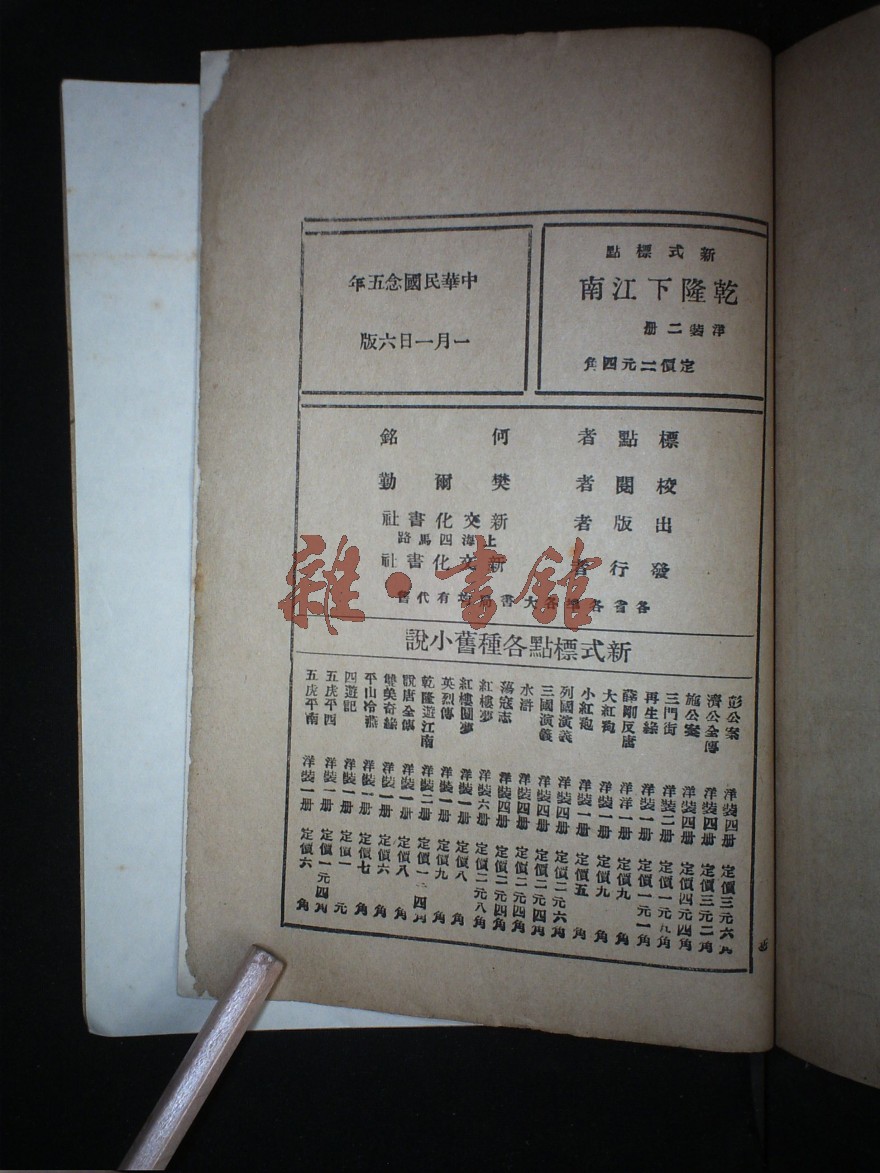 新式標點
乾隆下江南
洋裝二册
定價二元四角
中華民國念五年
一月一日六版
標點者 何銘
校閱者 樊爾勤
出版者 新文化書社
上海四馬路
發行者 新文化書社
各省各埠各大書局均有代售
新式標點各種舊小說
彭公案 洋裝四册 定價三元六角
濟公全傳 洋裝四册 定價三元二角
施公案 洋裝四册 定價四元四角
三門街 洋裝二册 定價一元九角
再生緣 洋裝一册 定價一元一角
薛剛反唐 洋洋一册 定價九角
大紅袍 洋裝一册 定價九角
小紅袍 洋裝一册 定價五角
列國演義 洋裝四册 定價二元六角
三國演義 洋裝四册 定價二元四角
水滸 洋裝四册 定價二元四角
蕩寇志 洋裝四册 定價二元四角
紅樓夢 洋裝六册 定價二元八角
紅樓圓夢 洋裝一册 定價八角
英烈傳 洋裝一册 定價九角
乾隆遊江南 洋裝二册 定價一元四角
說唐全傳 洋裝一册 定價八角
雙美奇緣 洋裝一册 定價六角
平山冷燕 洋裝一册 定價七角
四遊記 洋裝一册 定價一元
五虎平西 洋裝一册 定價一元四角
五虎平南 洋裝一册 定價六角
雜·書館